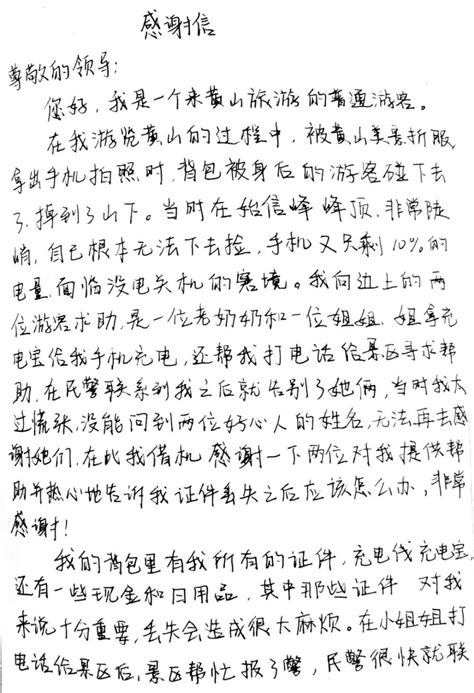 感谢信
尊敬的领导:
您好,我是一个来黄山旅游的普通游客。
在我游览黄山的过程中,被黄山美景折服,
拿出手机拍照时,背包被身后的游客碰下去
了,掉到了山下。当时在始信峰峰顶,非常陡
峭,自己根本无法下去捡,手机又只剩10%的
电量,面临没电关机的窘境。我向边上的两
位游客求助,是一位老奶奶和一位姐姐,姐拿充
电宝给我手机充电,还帮我打电话给景区寻求帮
助,在民警联系到我之后就告别了她俩,当时我太
过慌张,没能问到两位好心人的姓名,无法再去感
谢她们,在此我借机感谢一下两位对我提供帮
助并热心地告诉我证件丢失之后应该怎么办,非常
感谢!
我的背包里有我所有的证件,充电线充电宝,
还有一些现金和日用品,其中那些证件对我
来说十分重要,丢失会造成很大麻烦。在小姐姐打
电话给景区后,景区帮忙报了警,民警很快就联